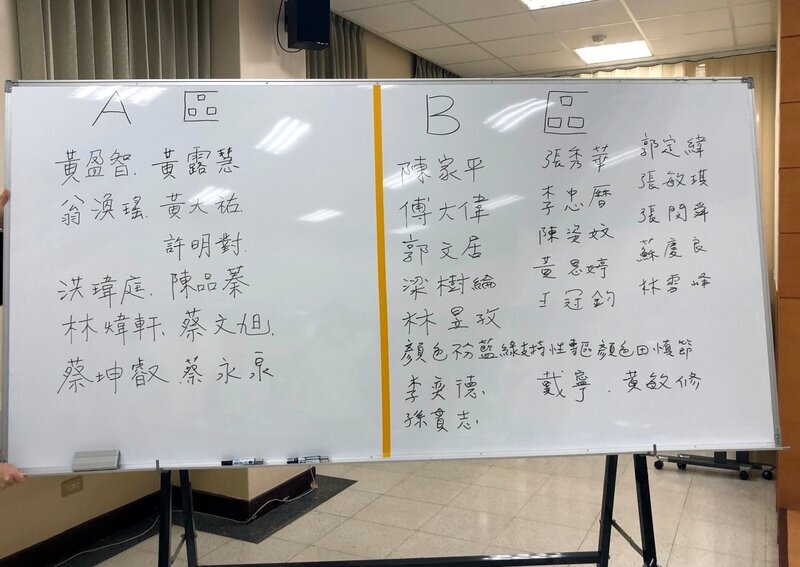 A 區
黃盈智. 黃露慧
翁渙瑤. 黃大祐.
許明對.
洪瑋庭. 陳品蓁
林煒軒. 蔡文旭.
蔡坤叡 蔡永泉
B 區
陳家平 張秀華 郭定緯
傅大偉 李忠曆 張敏琪
郭文居 陳姿妏 張閔舜
梁樹綸 黃思婷 蘇慶良
林昱孜 王冠鈞 林雪峰
顏色不分藍綠支持性專區顏色田慎節
李奕德. 戴寧. 黃敏修
孫貫志.